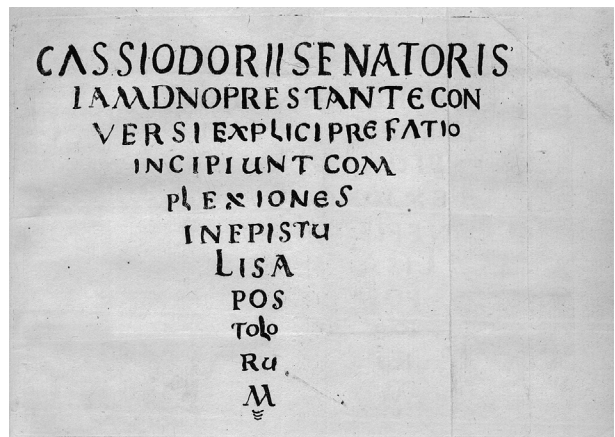 CASSIODORIISENATORIS
IAMDNOPRESTANTECON
VERSIEXPLICIPREFATIO
INCIPIUNTCOM
PLEXIONES
INEPISTU
LISA
POS
TOLO
RU
M